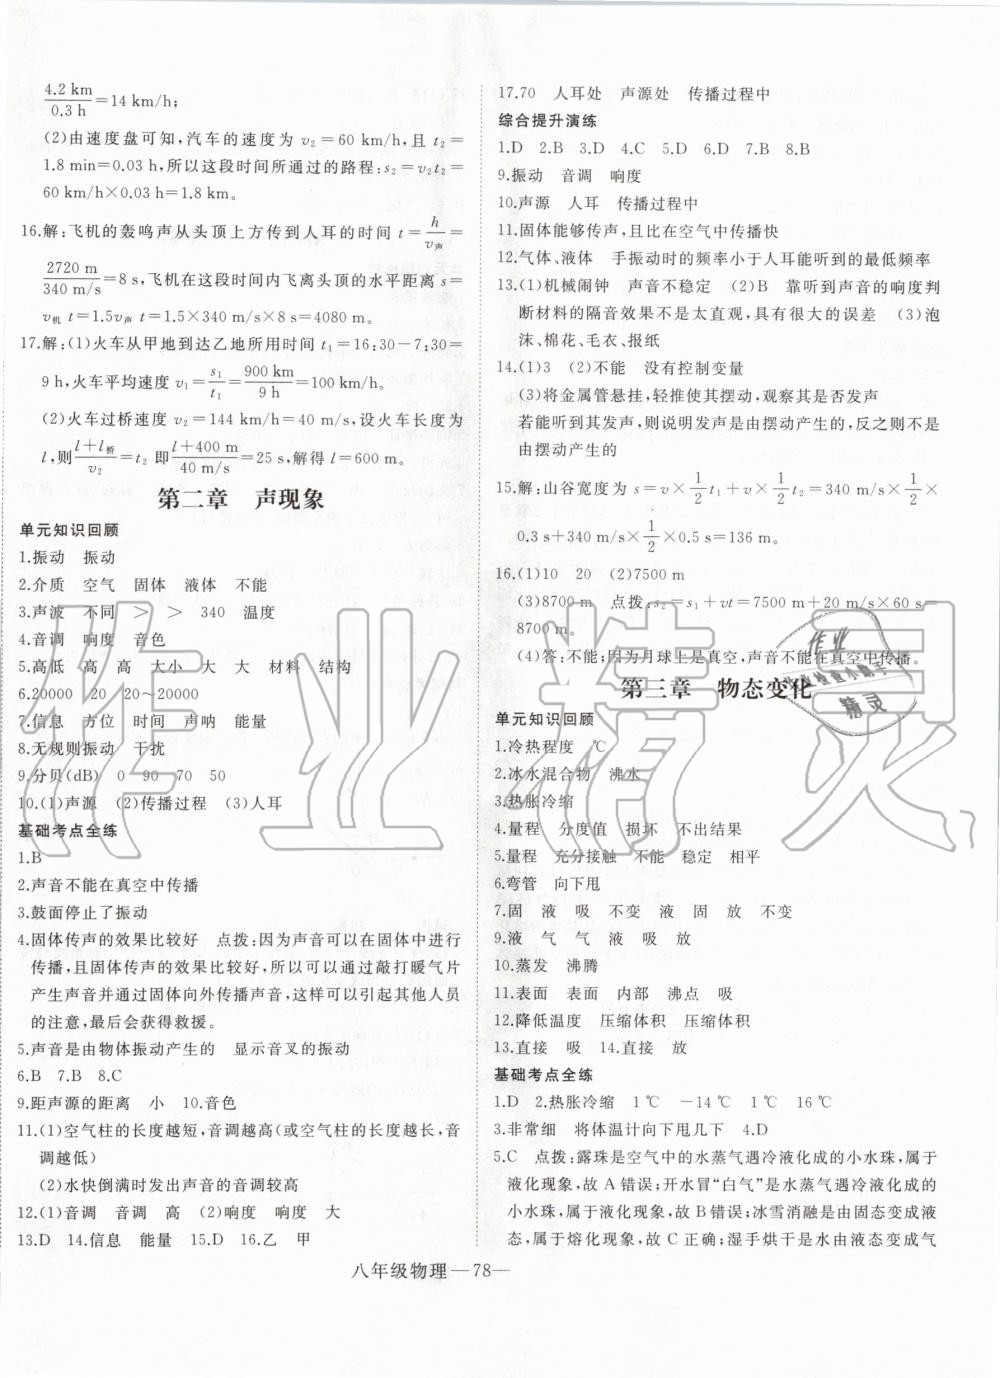 4.2 km/0.3 h=14 km/h;
(2)由速度盘可知,汽车的速度为 v₂=60 km/h,且 t₂=
1.8 min=0.03 h,所以这段时间所通过的路程:s₂=v₂t₂=
60 km/h×0.03 h=1.8 km。
16.解:飞机的轰鸣声从头顶上方传到人耳的时间 t=h/v声=
2720 m/340 m/s=8 s,飞机在这段时间内飞离头顶的水平距离 s=
v机 t=1.5v声 t=1.5×340 m/s×8 s=4080 m。
17.解:(1)火车从甲地到达乙地所用时间 t₁=16:30-7:30=
9 h,火车平均速度 v₁=s₁/t₁=900 km/9 h=100 km/h。
(2)火车过桥速度 v₂=144 km/h=40 m/s,设火车长度为
l,则(l+l桥)/v₂=t₂ 即(l+400 m)/40 m/s=25 s,解得 l=600 m。
第二章 声现象
单元知识回顾
1.振动 振动
2.介质 空气 固体 液体 不能
3.声波 不同 > > 340 温度
4.音调 响度 音色
5.高低 高 高 大小 大 大 材料 结构
6.20000 20 20~20000
7.信息 方位 时间 声呐 能量
8.无规则振动 干扰
9.分贝(dB) 0 90 70 50
10.(1)声源 (2)传播过程 (3)人耳
基础考点全练
1.B
2.声音不能在真空中传播
3.鼓面停止了振动
4.固体传声的效果比较好 点拨:因为声音可以在固体中进行
传播,且固体传声的效果比较好,所以可以通过敲打暖气片
产生声音并通过固体向外传播声音,这样可以引起其他人员
的注意,最后会获得救援。
5.声音是由物体振动产生的 显示音叉的振动
6.B 7.B 8.C
9.距声源的距离 小 10.音色
11.(1)空气柱的长度越短,音调越高(或空气柱的长度越长,音
调越低)
(2)水快倒满时发出声音的音调较高
12.(1)音调 音调 高 (2)响度 响度 大
13.D 14.信息 能量 15.D 16.乙 甲
17.70 人耳处 声源处 传播过程中
综合提升演练
1.D 2.B 3.D 4.C 5.D 6.D 7.B 8.B
9.振动 音调 响度
10.声源 人耳 传播过程中
11.固体能够传声,且比在空气中传播快
12.气体、液体 手振动时的频率小于人耳能听到的最低频率
13.(1)机械闹钟 声音不稳定 (2)B 靠听到声音的响度判
断材料的隔音效果不是太直观,具有很大的误差 (3)泡
沫、棉花、毛衣、报纸
14.(1)3 (2)不能 没有控制变量
(3)将金属管悬挂,轻推使其摆动,观察其是否发声
若能听到其发声,则说明发声是由摆动产生的,反之则不是
由摆动产生的
15.解:山谷宽度为 s=v×1/2t₁+v×1/2t₂=340 m/s×1/2×
0.3 s+340 m/s×1/2×0.5 s=136 m。
16.(1)10 20 (2)7500 m
(3)8700 m 点拨:s₂=s₁+vt=7500 m+20 m/s×60 s=
8700 m。
(4)答:不能;因为月球上是真空,声音不能在真空中传播。
第三章 物态变化
单元知识回顾
1.冷热程度 ℃
2.冰水混合物 沸水
3.热胀冷缩
4.量程 分度值 损坏 不出结果
5.量程 充分接触 不能 稳定 相平
6.弯管 向下甩
7.固 液 吸 不变 液 固 放 不变
9.液 气 气 液 吸 放
10.蒸发 沸腾
11.表面 表面 内部 沸点 吸
12.降低温度 压缩体积 压缩体积
13.直接 吸 14.直接 放
基础考点全练
1.D 2.热胀冷缩 1 ℃ -14 ℃ 1 ℃ 16 ℃
3.非常细 将体温计向下甩几下 4.D
5.C 点拨:露珠是空气中的水蒸气遇冷液化成的小水珠,属于
液化现象,故 A 错误;开水冒“白气”是水蒸气遇冷液化成的
小水珠,属于液化现象,故 B 错误;冰雪消融是由固态变成液
态,属于熔化现象,故 C 正确;湿手烘干是水由液态变成气
八年级物理—78—
作业精灵
作业
作业检查小助手
精灵